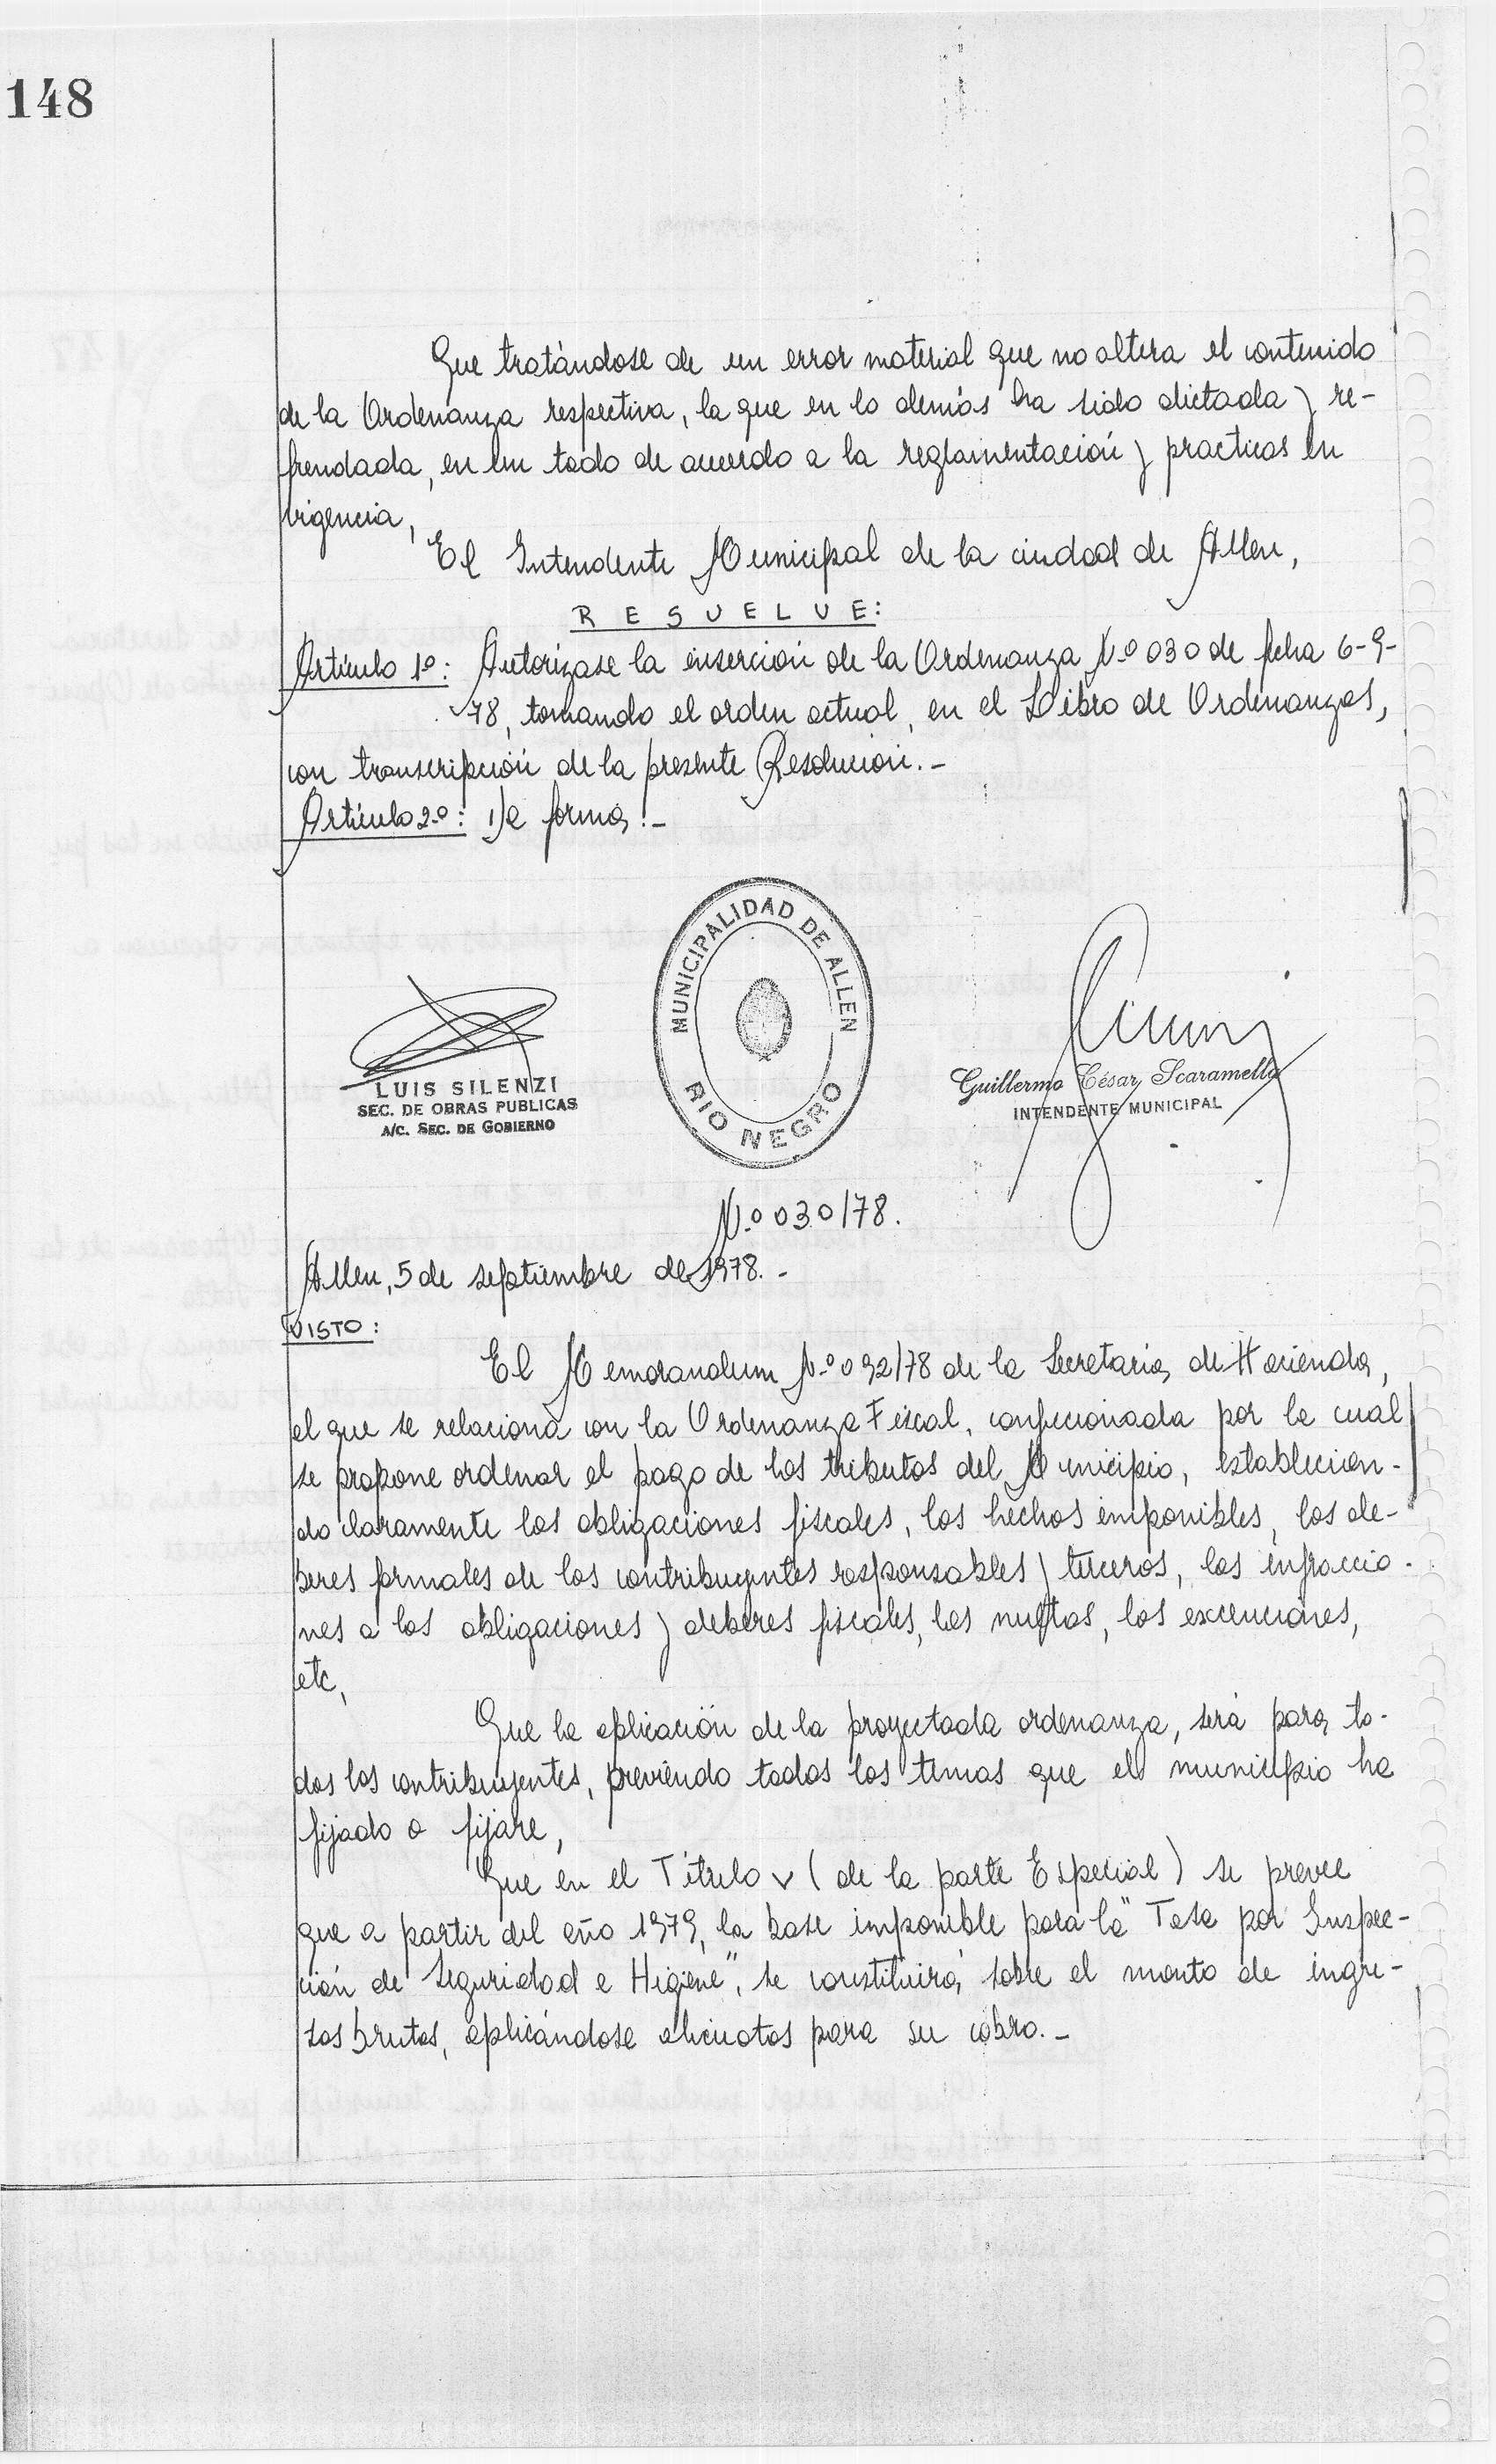 148
Que tratándose de un error material que no altera el contenido
de la Ordenanza respectiva, la que en lo demás ha sido dictada y re-
frendada, en un todo de acuerdo a la reglamentación y practicas en
vigencia,
El Intendente Municipal de la ciudad de Allen,
RESUELVE:
Artículo 1º: Autorízase la inserción de la Ordenanza Nº 030 de fecha 6-9-
78, tomando el orden actual, en el Libro de Ordenanzas,
con transcripción de la presente Resolución.-
Artículo 2º: De forma.-
MUNICIPALIDAD DE ALLEN
RIO NEGRO
LUIS SILENZI
SEC. DE OBRAS PUBLICAS
A/C. SEC. DE GOBIERNO
Guillermo César Scaramella
INTENDENTE MUNICIPAL
Nº 030/78.
Allen, 5 de septiembre de 1978.-
VISTO:
El Memorandum Nº 092/78 de la Secretaría de Hacienda,
el que se relaciona con la Ordenanza Fiscal, confeccionada por la cual
se propone ordenar el pago de los tributos del Municipio, establecien-
do claramente las obligaciones fiscales, los hechos imponibles, los de-
beres formales de los contribuyentes responsables y terceros, las infraccio-
nes a las obligaciones y deberes fiscales, las multas, las excenciones,
etc,
Que la aplicación de la proyectada ordenanza, será para to-
dos los contribuyentes, previendo todos los temas que el municipio ha
fijado o fijare,
Que en el Título V (de la parte Especial) se prevee
que a partir del año 1979, la base imponible para la "Tasa por Inspec-
ción de Seguridad e Higiene", se constituirá sobre el monto de ingre-
sos brutos, aplicándose alicuotas para su cobro.-